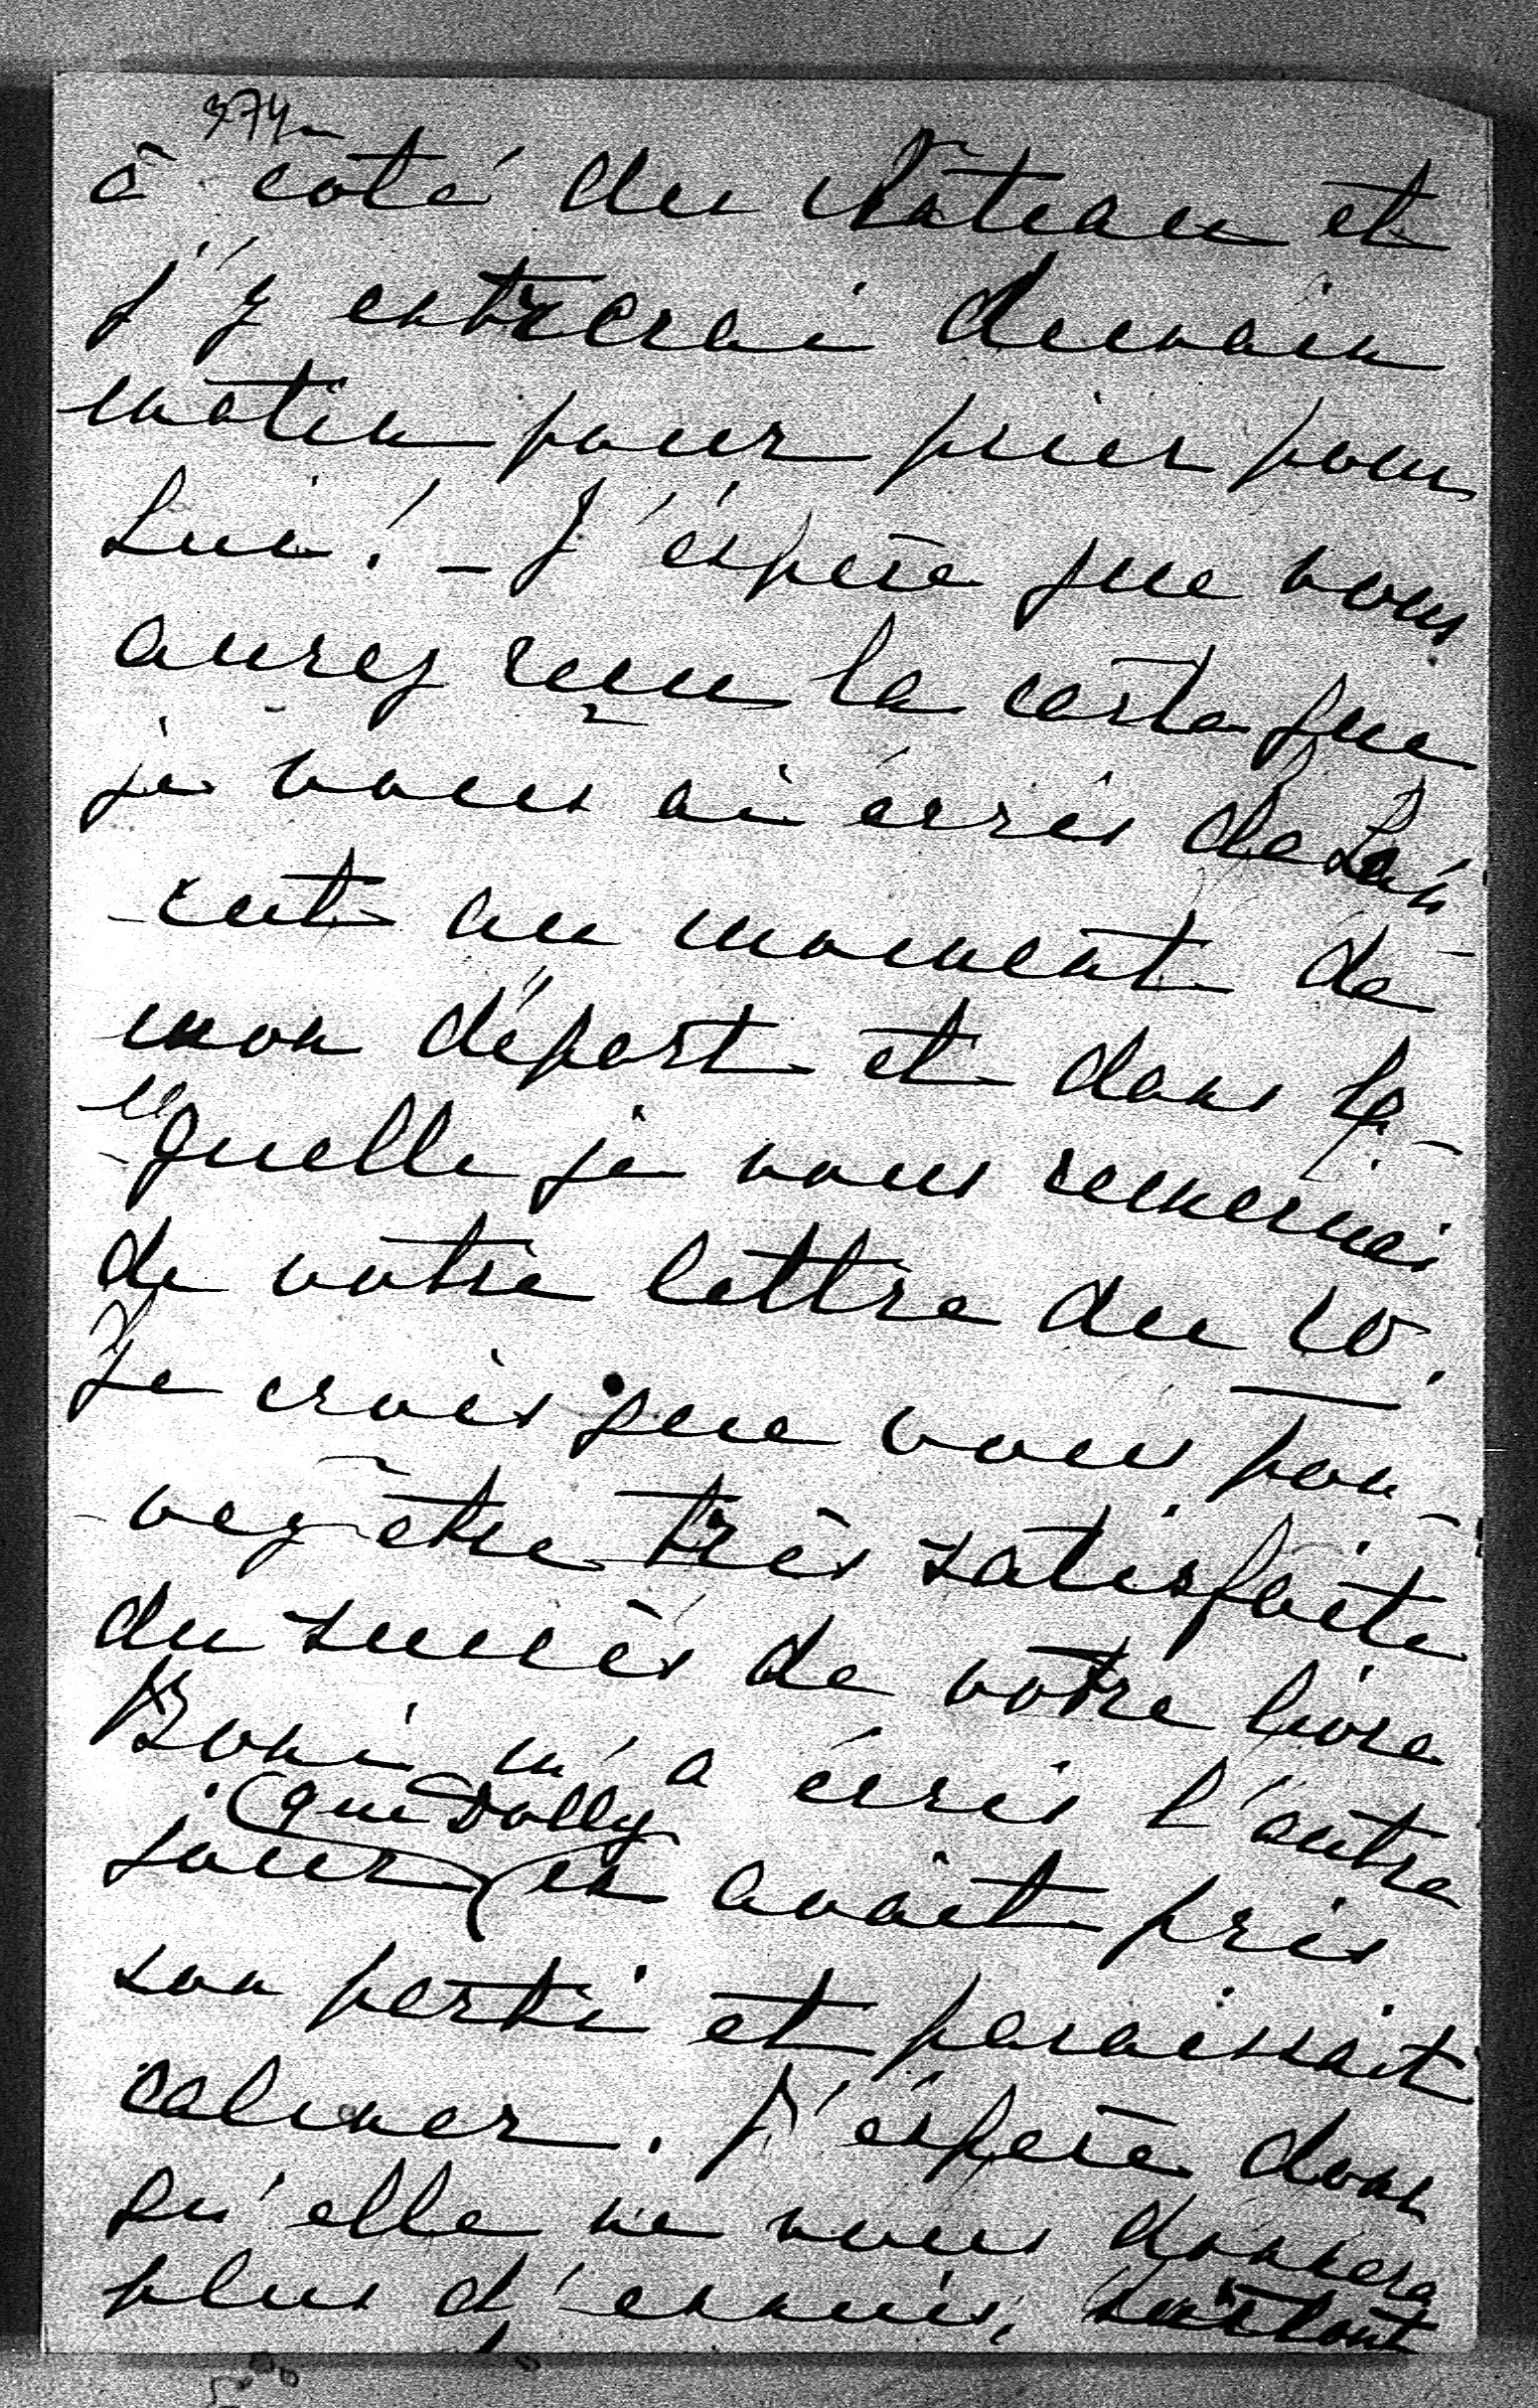 374
à coté du Château et
j'y entrerai demain
matin pour prier pour
Lui! – J'éspère que vous
aurez reçu la carte que
je vous ai écris de
cut au moment de
mon départ et dans la-
-quelle je vous remerciai
de votre lettre du 10.
Je crois que vous pou-
-vez être très satisfaite
du succès de votre livre
Boni m'a écris l'autre
(que Dolly
jour en avait pris
son parti et paraissait
calmer. J'éspère donc
qu'elle ne vous donnera
plus d'ennuis, surtout